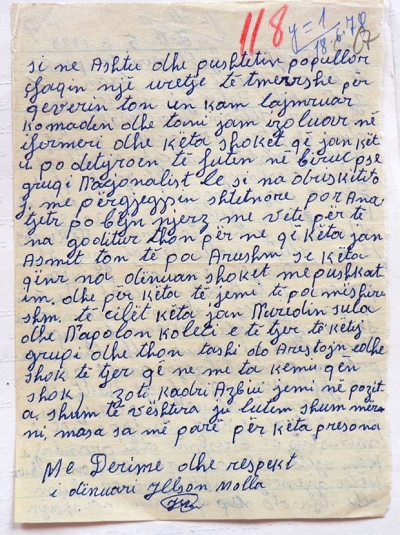 118
y=1
18.6.78
si ne Ashtu dhe pushtetin popullor
çfaqin një uretje të tmerrshe për
qeverin ton un kam lajmruar
komaden dhe tani jam izoluar në
ifermeri dhe këta shokët që jan kët
u po detyroen të futen në biruc pse
grupi Nacjonalist
me përgjegjsin shtetnore por Ana
tjetr po bëjn njerz me veti për të
na goditur thon për ne që këta jan
Asmit ton të pa Arushm se këta
qënr na dënuan shokët me pushkat
im. dhe për këta të jemi të pa mëshirë
shm. të cilët këta jan Nuredin sula
dhe Napolon koleci e të tjer të këtij
grupi dhe thon tashi do Arestojn edhe
shok të tjer që ne me ta kemu qën
shok, zoti kadri Azbiu jemi në pozit
a, shum të vështira ju lutem shum mërr
ni, masa sa më parë për këta presona
Me Derime dhe respekt
i dënuari Ilson Molla